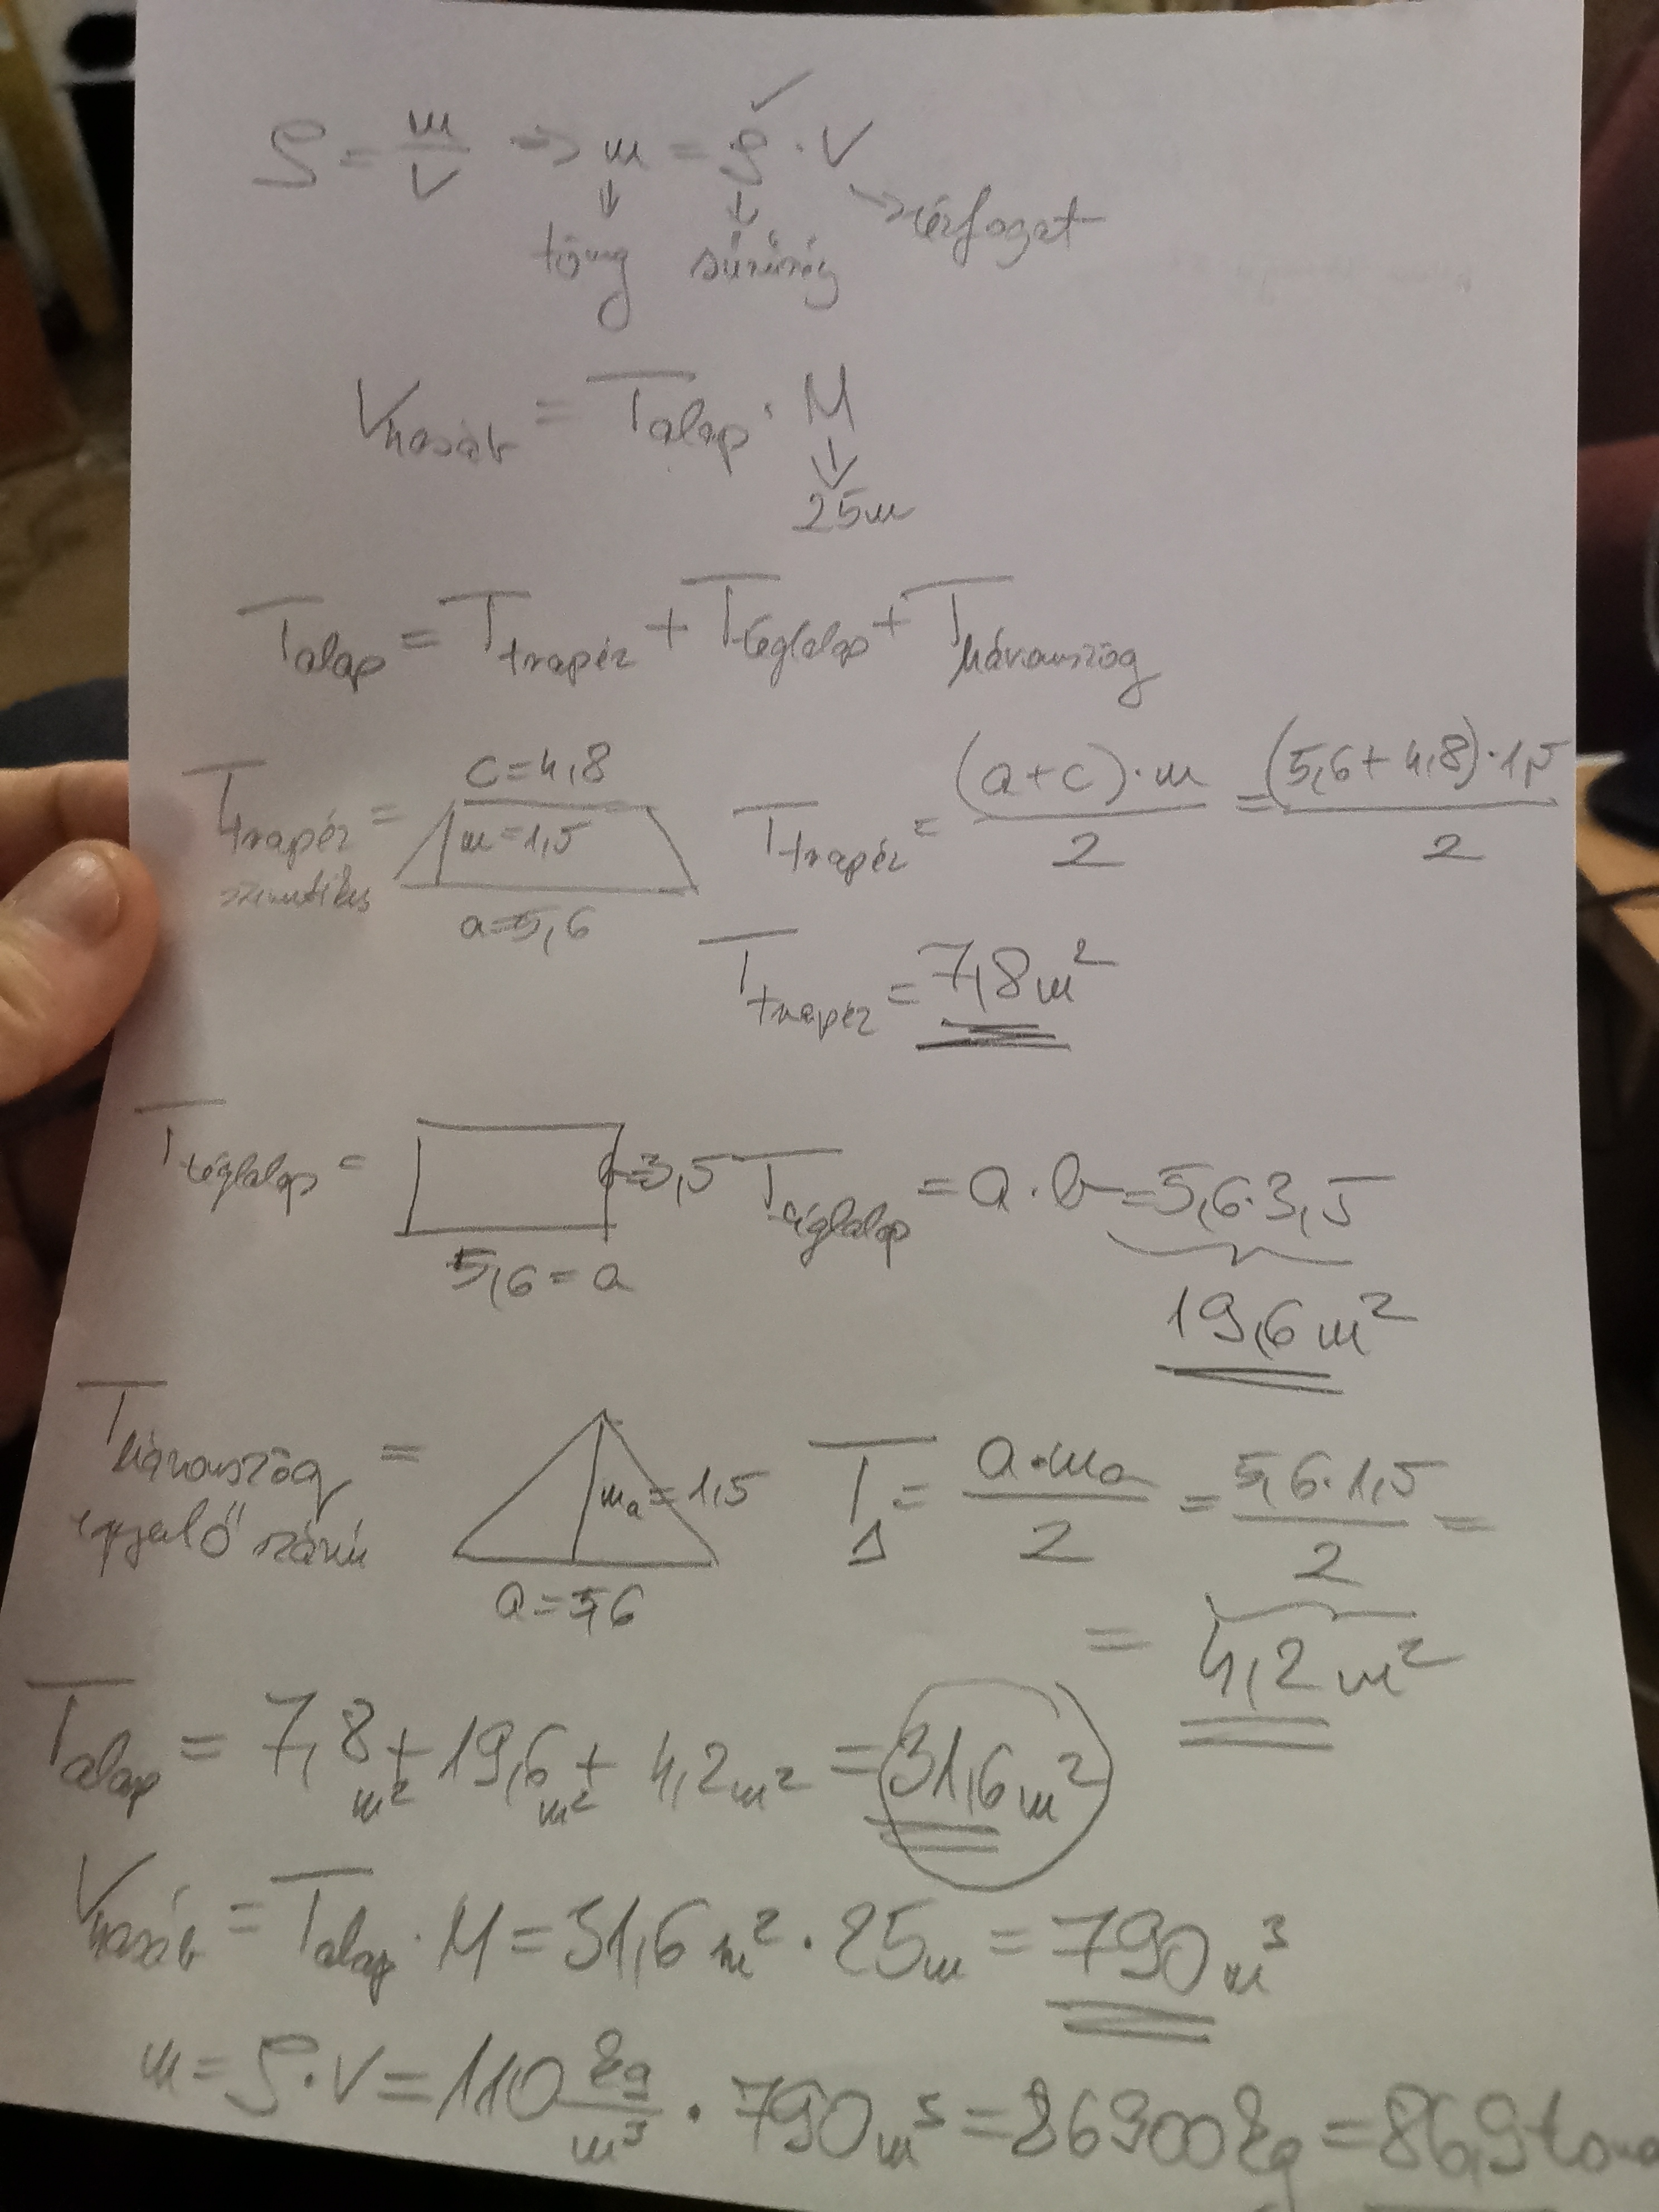 ρ = m/V => m = ρ · V ✓
tömeg sűrűség térfogat
Vhasáb = Talap · M
25m
Talap = Ttrapéz + Ttéglalap + Tháromszög
Ttrapéz = c=4,8 m=1,5 a=5,6 Ttrapéz = (a+c)·m/2 = (5,6+4,8)·1,5/2
Ttrapéz = 7,8m²
Ttéglalap = b=3,5 Ttéglalap = a·b = 5,6·3,5
5,6=a
19,6m²
Tháromszög = ma=1,5 TΔ = a·ma/2 = 5,6·1,5/2 =
egyenlő szárú
a=5,6
= 4,2m²
Talap = 7,8m² + 19,6m² + 4,2m² = 31,6m²
Vhasáb = Talap · M = 31,6m² · 25m = 790m³
m = ρ·V = 110 kg/m³ · 790m³ = 86900kg = 86,9 tonna